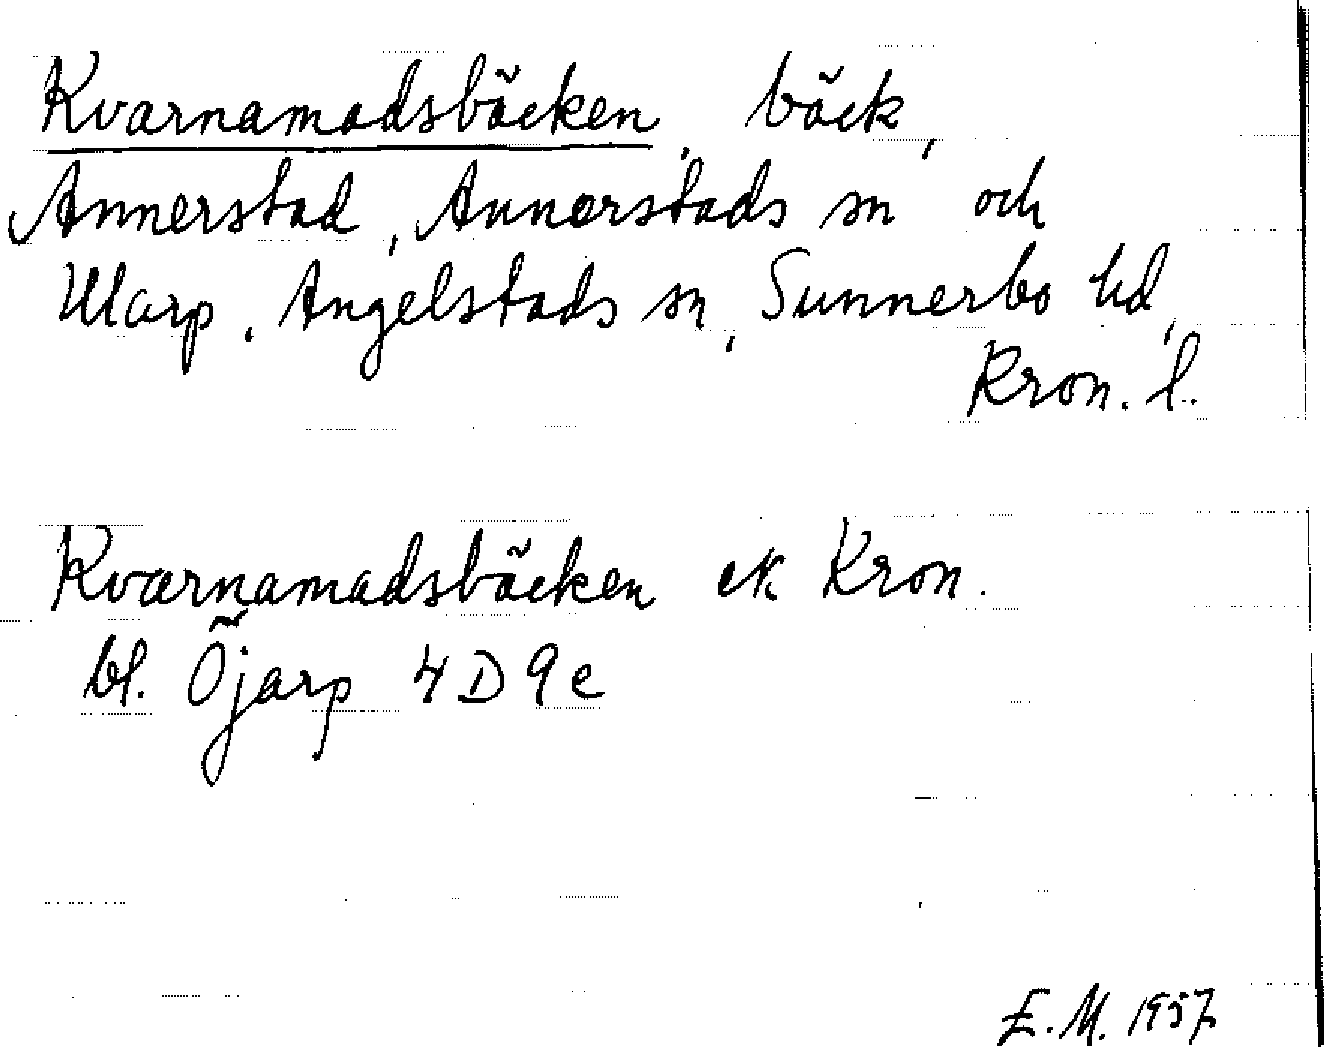 Kvarnamadsbäcken, bäck,
Annerstad, Annerstads sn och
Ularp, Angelstads sn, Sunnerbo hd,
Kron. l.
Kvarnamadsbäcken ek Kron.
bl. Öjarp 4D9c
E.M. 1957